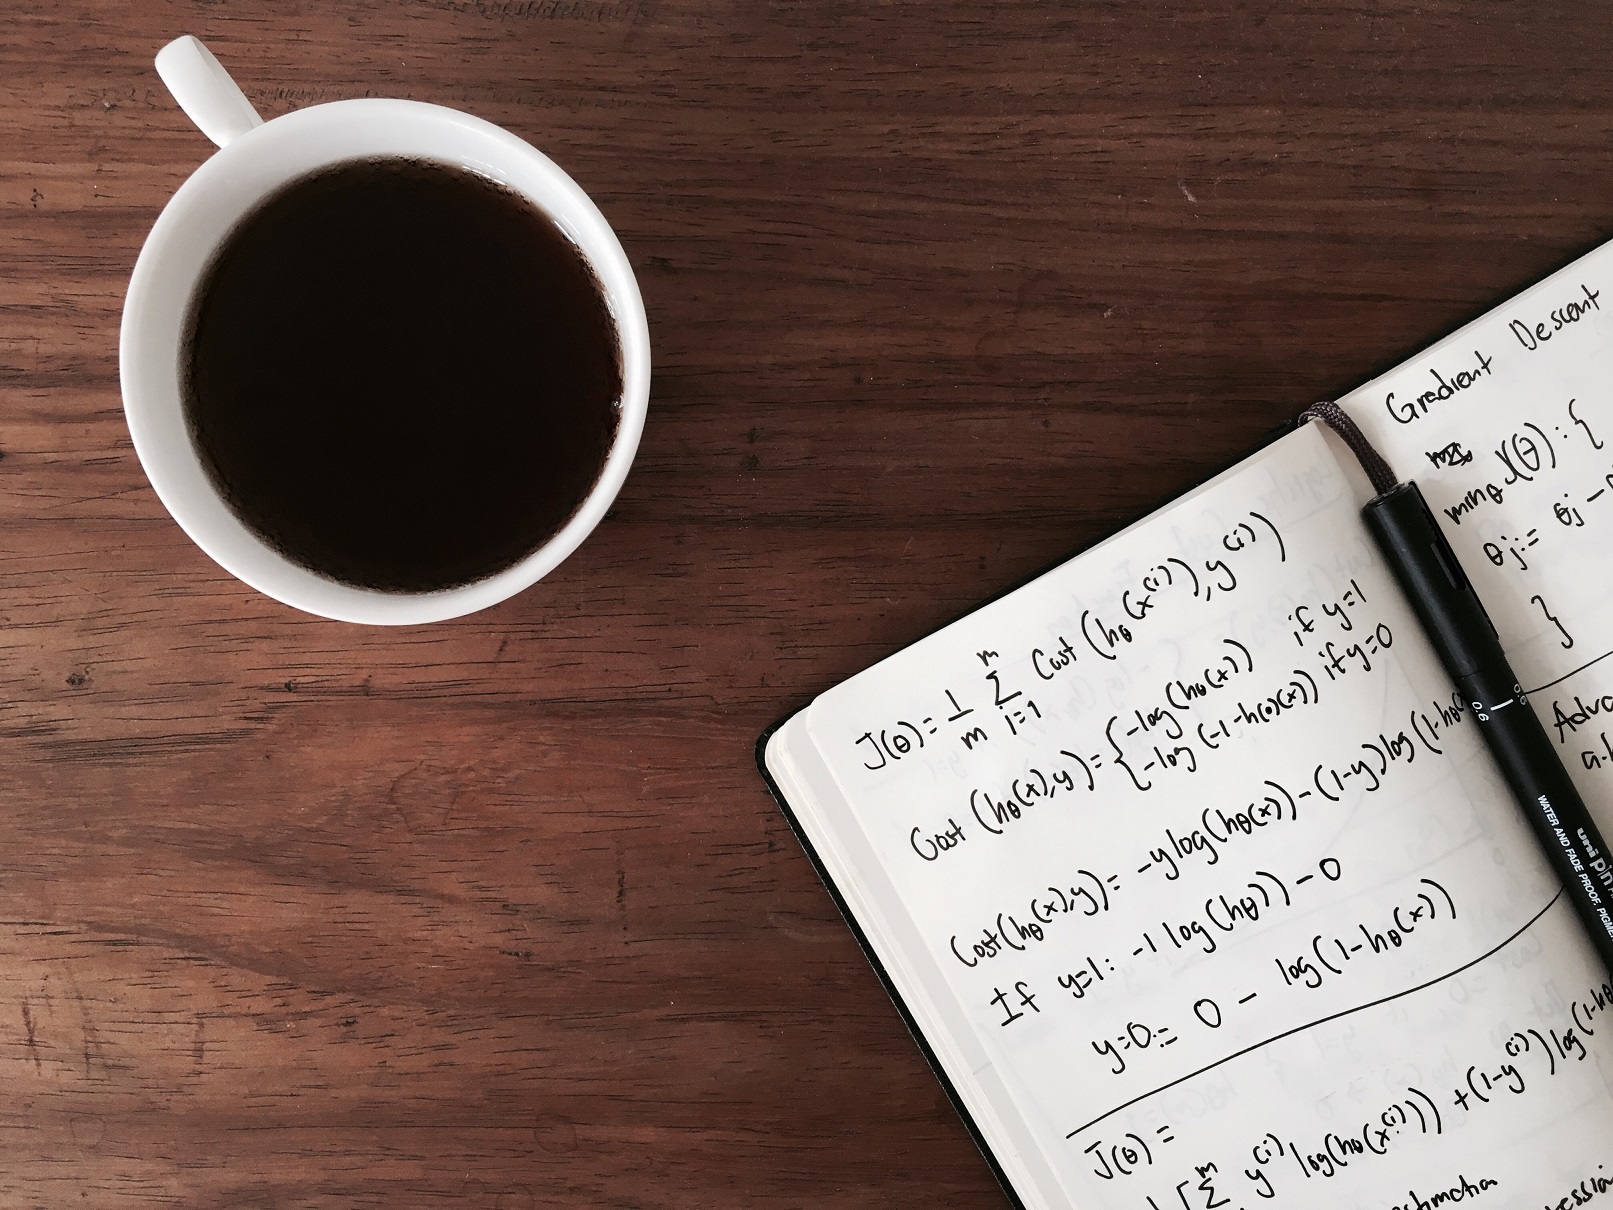 J(θ) = 1/m Σ_{i=1}^{m} Cost (hθ(x^(i)), y^(i))
Cost (hθ(x), y) = { -log(hθ(x)) if y=1
-log(-1-h(θ)(x)) if y=0
Cost(hθ(x), y) = -y log(hθ(x)) - (1-y) log(1-hθ(
If y=1: -1 log(hθ)) - 0
y=0:= 0 - log(1-hθ(x))
J(θ) =
[Σ^m y^(i) log(hθ(x^(i))) + (1-y^(i)) log(1-hθ
Gradient Descent
minθ J(θ): {
θj := θj -
}
0.6
0.6
WATER AND FADE PROOF. PIGME
uni pin